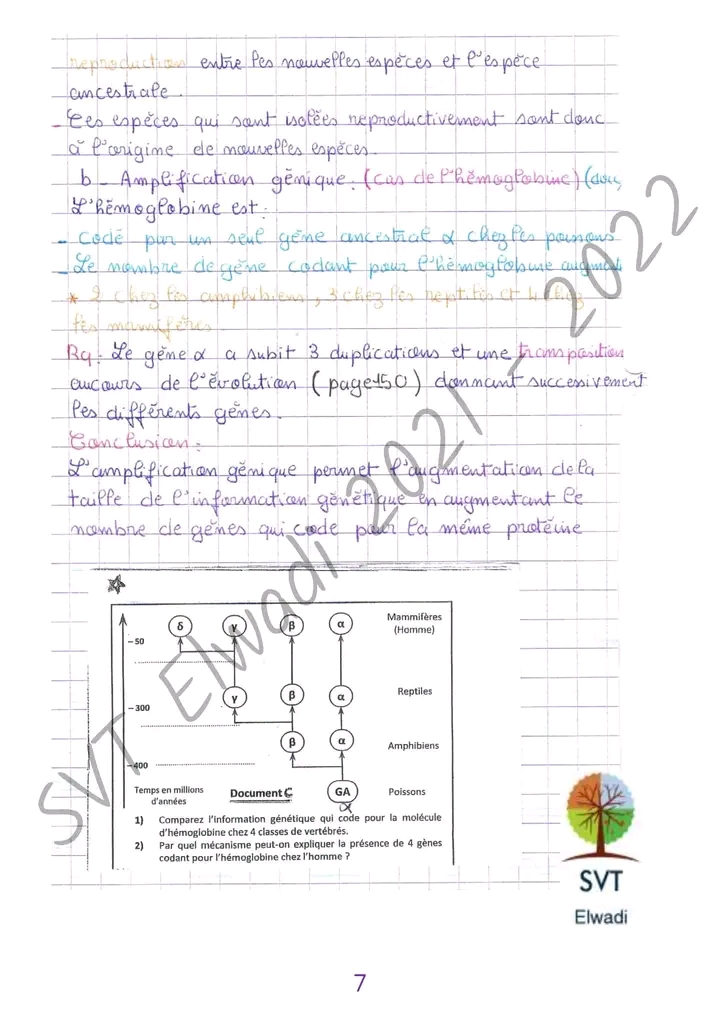 reproduction entre les nouvelles espèces et l'espèce
ancestrale.
- Ces espèces qui sont isolées reproductivement sont donc
à l'origine de nouvelles espèces.
b - Amplification génique. (cas de l'hémoglobine) (doc,
L'hémoglobine est :
- Codé par un seul gène ancestral α chez les poissons
- Le nombre de gène codant pour l'hémoglobine augment
* 2 chez les amphibiens, 3 chez les reptiles et 4 chez
les mamifères.
Rq - Le gène α a subit 3 duplications et une transposition
aucours de l'évolution (page 150) donnant successivement
les différents gènes.
Conclusion :
L'amplification génique permet l'augmentation de la
taille de l'information génétique en augmentant le
nombre de gènes qui code pour la même protéine
SVT Elwadi 2021 - 2022
δ γ β α Mammifères
(Homme)
- 50
γ β α Reptiles
- 300
β α Amphibiens
-400
Temps en millions
d'années
Document C
GA Poissons
α
1) Comparez l'information génétique qui code pour la molécule
d'hémoglobine chez 4 classes de vertébrés.
2) Par quel mécanisme peut-on expliquer la présence de 4 gènes
codant pour l'hémoglobine chez l'homme ?
SVT
Elwadi
7